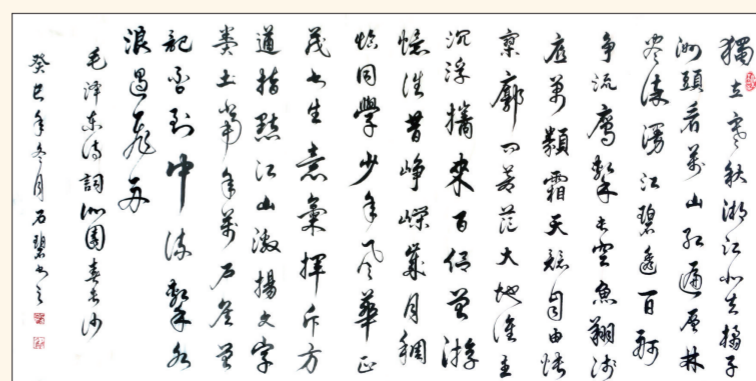 獨立寒秋湘江北去橘子
洲頭看萬山紅遍層林
尽染漫江碧透百舸
争流鷹擊長空魚翔淺
底萬類霜天競自由悵
寥廓問蒼茫大地誰主
沉浮攜來百侣曾游
憶往昔崢嶸歲月稠
恰同學少年風華正
茂書生意氣揮斥方
遒指點江山激揚文字
糞土當年萬户侯曾
記否到中流擊水
浪遏飛舟
毛泽东诗詞沁園春長沙
癸巳年冬月石碧書之